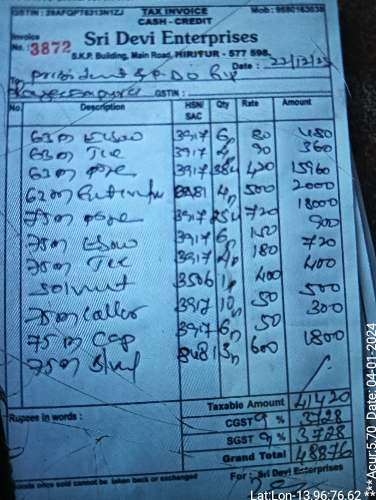 GSTIN : 29AFQPT6313N1ZJ TAX INVOICE Mob: 9880163038
CASH - CREDIT
Invoice No. : 3872 Sri Devi Enterprises
S.K.P. Building, Main Road, HIRIYUR - 577 598.
To Date : 22/12/23
GSTIN :
No. Description HSN/SAC Qty Rate Amount
63m 3917 6 80 480
63m Tee 3917 4 90 360
63m Pipe 3917 38 420 15960
63m 8481 4 500 2000
75m Pipe 3917 25 720 18000
75m 3917 6 150 900
75m Tee 3917 4 180 720
Solvent 3506 1 400 400
75m 3917 10 50 500
75m Cap 3917 6 50 300
75m 8481 3 600 1800
Taxable Amount 41420
Rupees in words : CGST 9 % 3728
SGST 9 % 3728
Grand Total 48876
Goods once sold cannot be taken back or exchanged For : Sri Devi Enterprises
Lat:Lon-13.96:76.62 ***Acur:5.70 Date: 04-01-2024